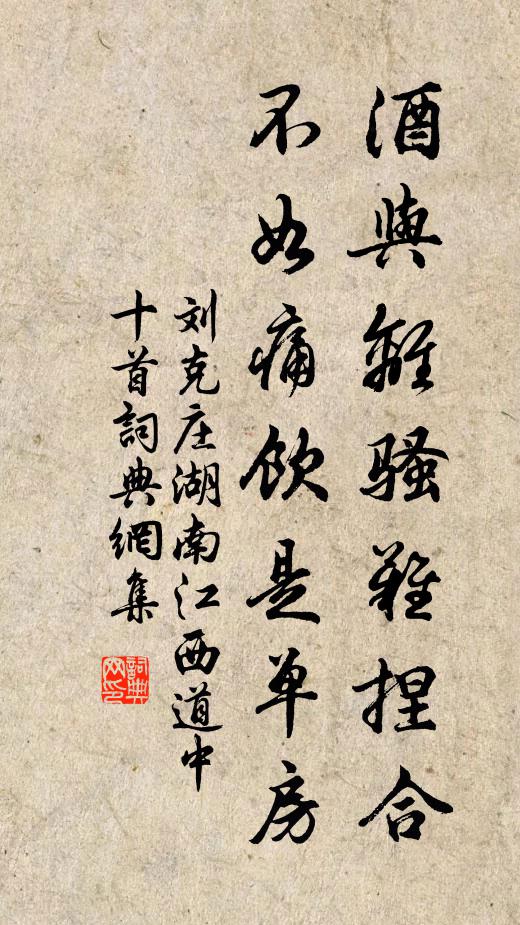 酒與離騷難捏合
不如痛飲是單房
刘克庄湖南江西道中
十首詞典網集
詞典網印